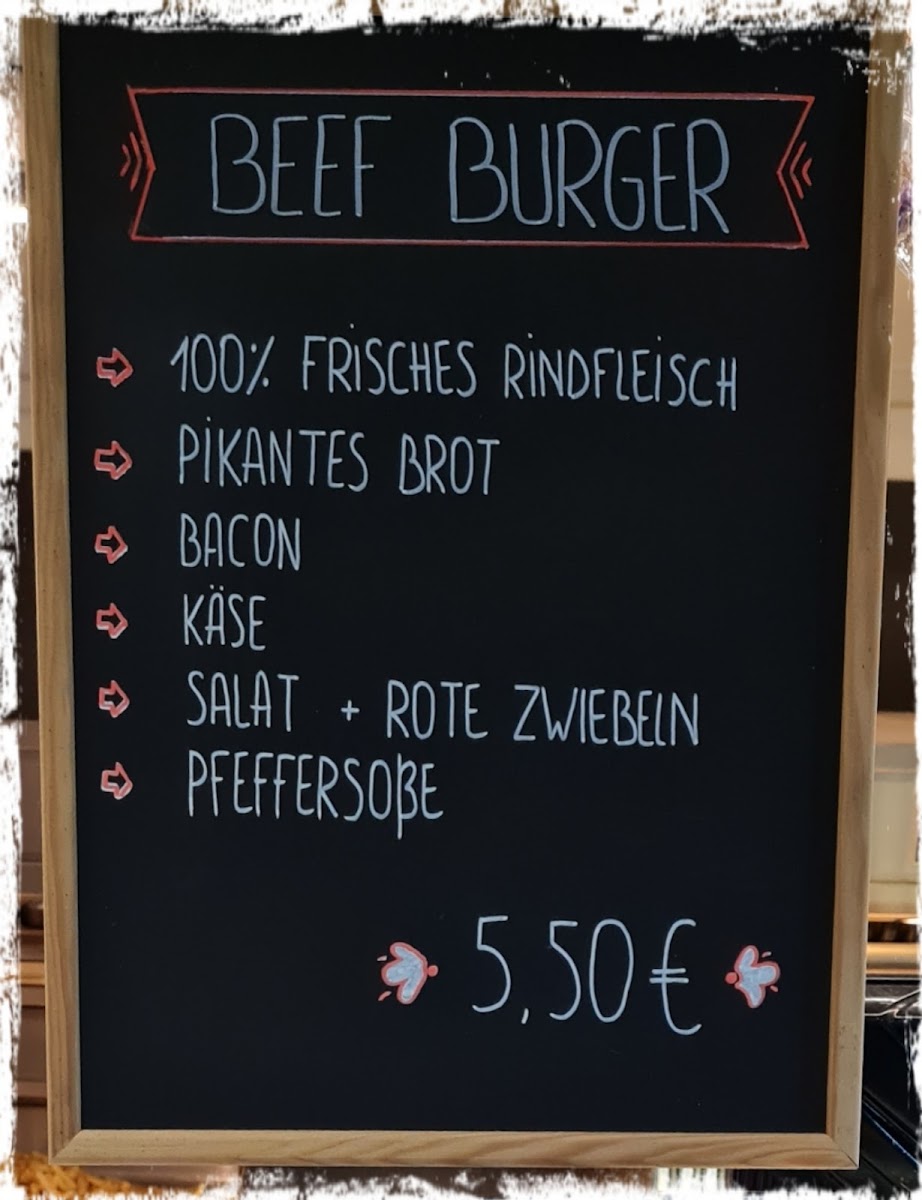 BEEF BURGER
100% FRISCHES RINDFLEISCH
PIKANTES BROT
BACON
KÄSE
SALAT + ROTE ZWIEBELN
PFEFFERSOßE
5,50€